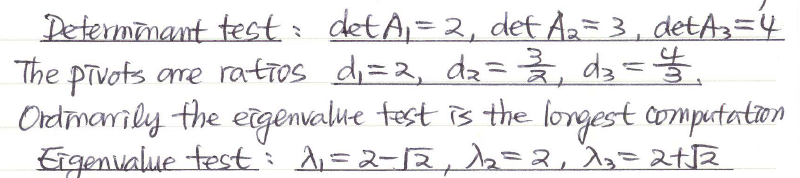 Determinant test : det A₁ = 2, det A₂ = 3, det A₃ = 4
The pivots are ratios d₁ = 2, d₂ = 3/2, d₃ = 4/3.
Ordinarily the eigenvalue test is the longest computation
Eigenvalue test : λ₁ = 2-√2, λ₂ = 2, λ₃ = 2+√2